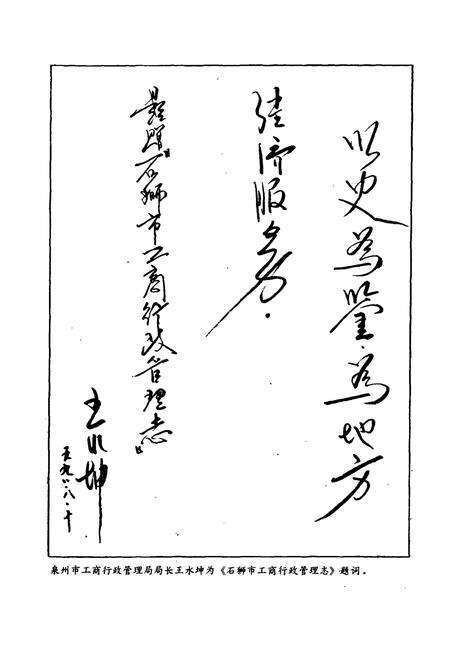 以史為鑒·為地方
经济服务.
题『石獅市工商行政管理志』
王水坤
泉州市工商行政管理局局长王水坤为《石狮市工商行政管理志》题词。